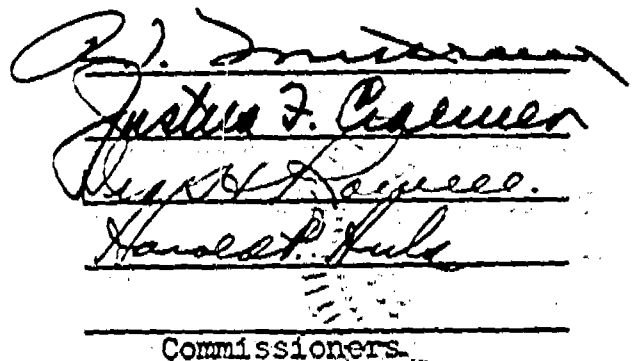 Justus F. Craemer
H. Rowell.
Harold P. Huls
Commissioners.